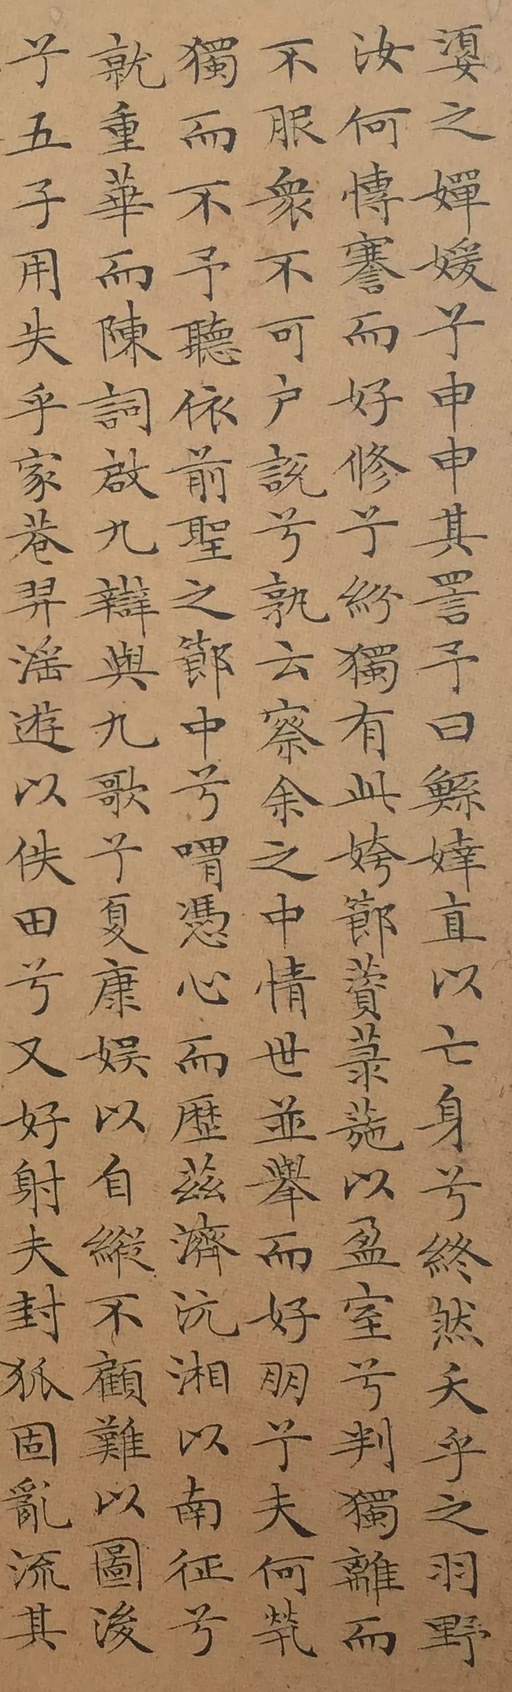 嬃之嬋媛兮申申其詈予曰鯀婞直以亡身兮終然夭乎之羽野
汝何博謇而好修兮紛獨有此姱節薋菉葹以盈室兮判獨離而
不服衆不可户說兮孰云察余之中情世並舉而好朋兮夫何煢
獨而不予聽依前聖之節中兮喟憑心而歷茲濟沅湘以南征兮
就重華而陳詞啟九辯與九歌兮夏康娱以自縱不顧難以圖後
兮五子用失乎家巷羿淫遊以佚田兮又好射夫封狐固亂流其